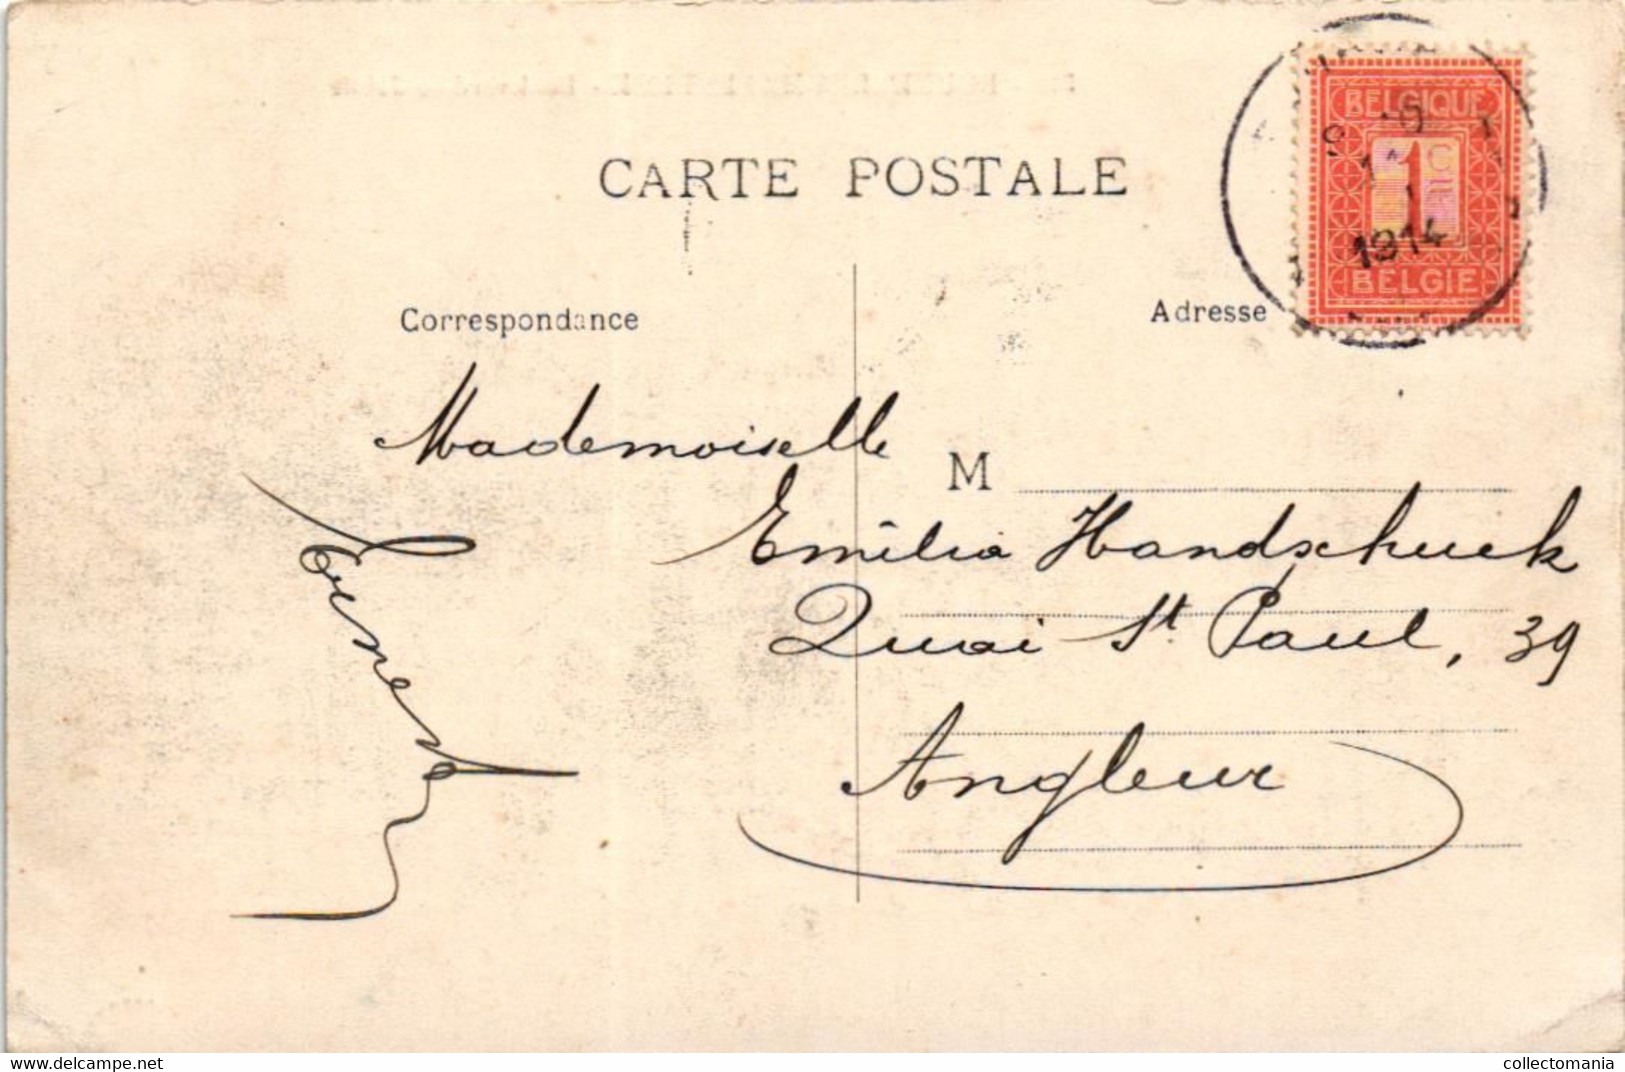 CARTE POSTALE
BELGIQUE
1 C
1914
BELGIE
Correspondance
Adresse
Mademoiselle
M
Emilia Handschuck
Quai St Paul, 39
Angleur
delcampe.net
collectomania